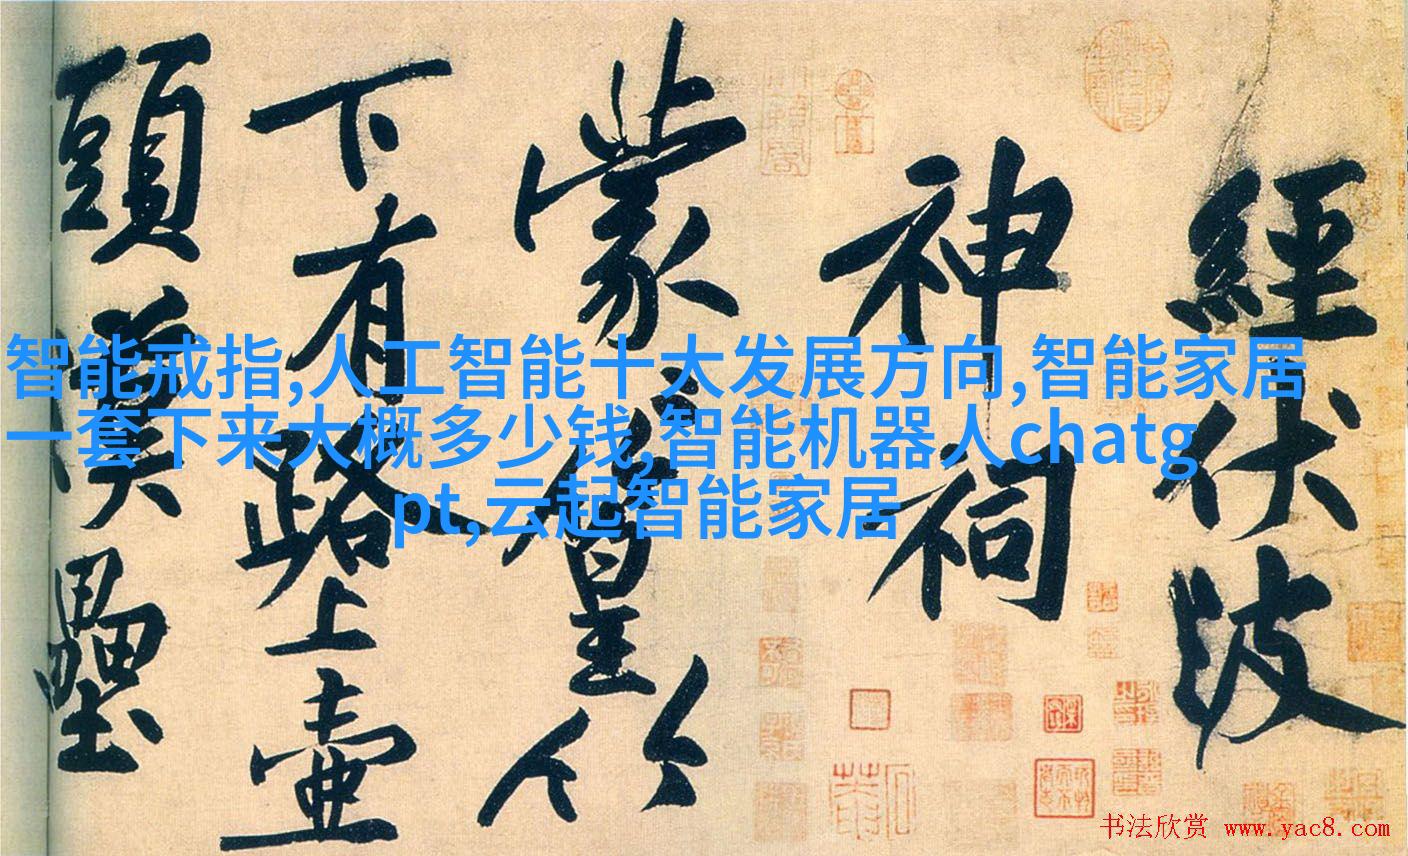 經伏波
神祠
蒙蒙篁竹
下有路上壺
頭漢壘
智能戒指,人工智能十大发展方向,智能家居
一套下来大概多少钱,智能机器人chatg
pt,云起智能家居
书法欣赏 www.yac8.com